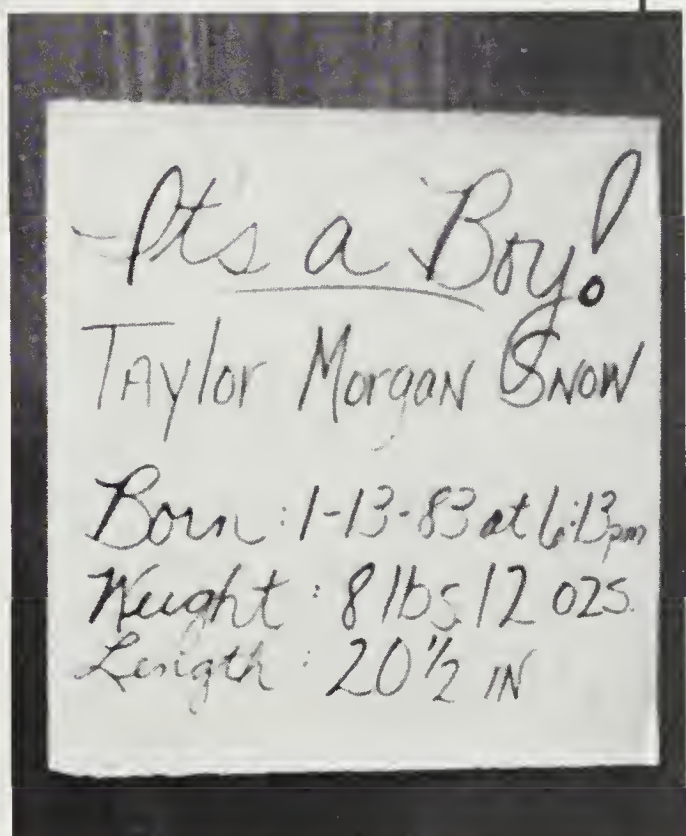 It's a Boy!
Taylor Morgan Snow
Born: 1-13-83 at 6:13 pm
Weight: 8 lbs. 12 ozs.
Length: 20 1/2 IN